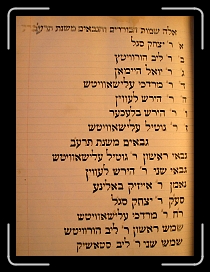 אלה שמות הבוררים והגבאים משנת תרעב
א ר׳ יצחק סגל
ב ר׳ ליב הורוויטץ
ג ר׳ יואל היימאן
ד ר׳ מרדכי עלישאוויטש
ה ר׳ הירש לעווין
ו ר׳ הירש בלעכער
ז ר׳ גוטיל עלישאוויטש
גבאים משנת תרעב
גבאי ראשון ר׳ גוטיל עלישאוויטש
גבאי שני ר׳ הירש לעווין
נאמן ר׳ אייזיק באלינע
סעק ר׳ יצחק סגל
רח ר׳ מרדכי עלישאוויטש
שמש ראשון ר׳ ליב הורוויטש
שמש שני ר׳ ליב סטאשיק